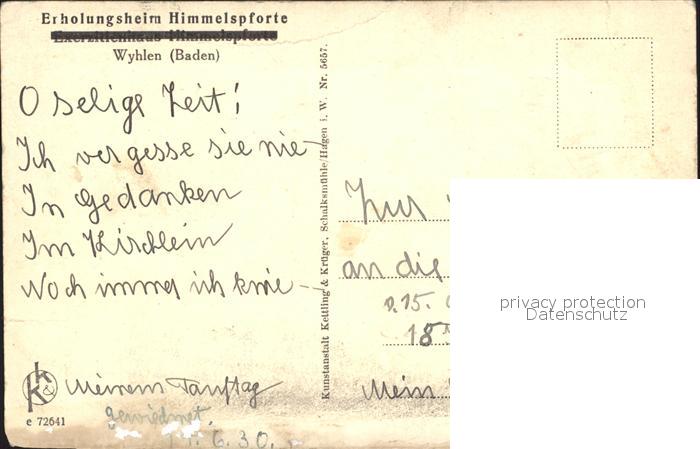 Erholungsheim Himmelspforte
Exerzitienhaus Himmelspforte
Wyhlen (Baden)
O selige Zeit!
Ich vergesse sie nie
In Gedanken
Im Kirchlein
Noch immer ich knie
Kunstanstalt Kettling & Krüger, Schalksmühle/Hagen i. W. Nr. 5657.
Zur
an die
15.
18
Mein
privacy protection
Datenschutz
K & K
Meinem Tauftag
gewidmet.
6.30.
e 72641